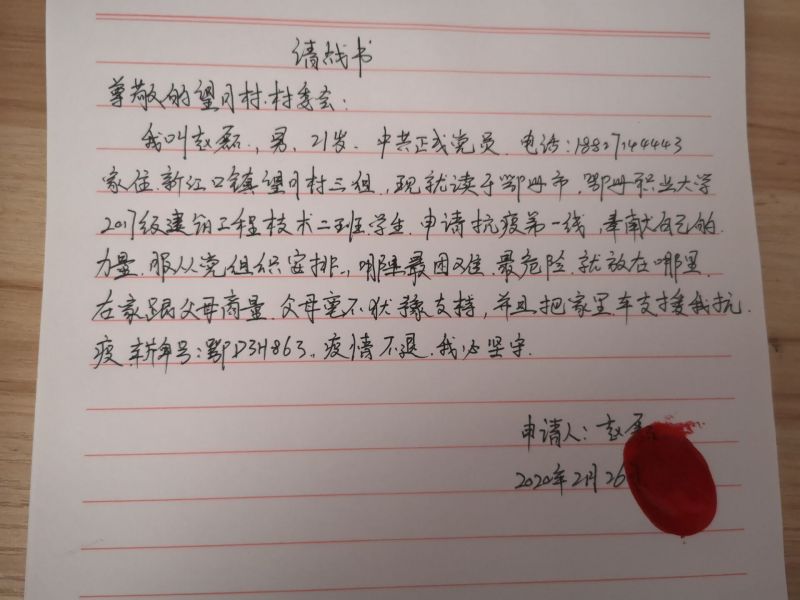 请战书
尊敬的望月村村委会：
我叫赵磊，男，21岁、中共正式党员。电话：18827144443
家住新江口镇望月村三组，现就读于鄂州市，鄂州职业大学
2017级建筑工程技术二班学生，申请抗疫第一线，奉献自己的
力量，服从党组织安排，哪里最困难、最危险，就放在哪里
在家跟父母商量，父母毫不犹豫支持，并且把家里车支援我抗
疫，车牌号：鄂D3H863。疫情不退，我必坚守。
申请人：赵磊
2020年2月26